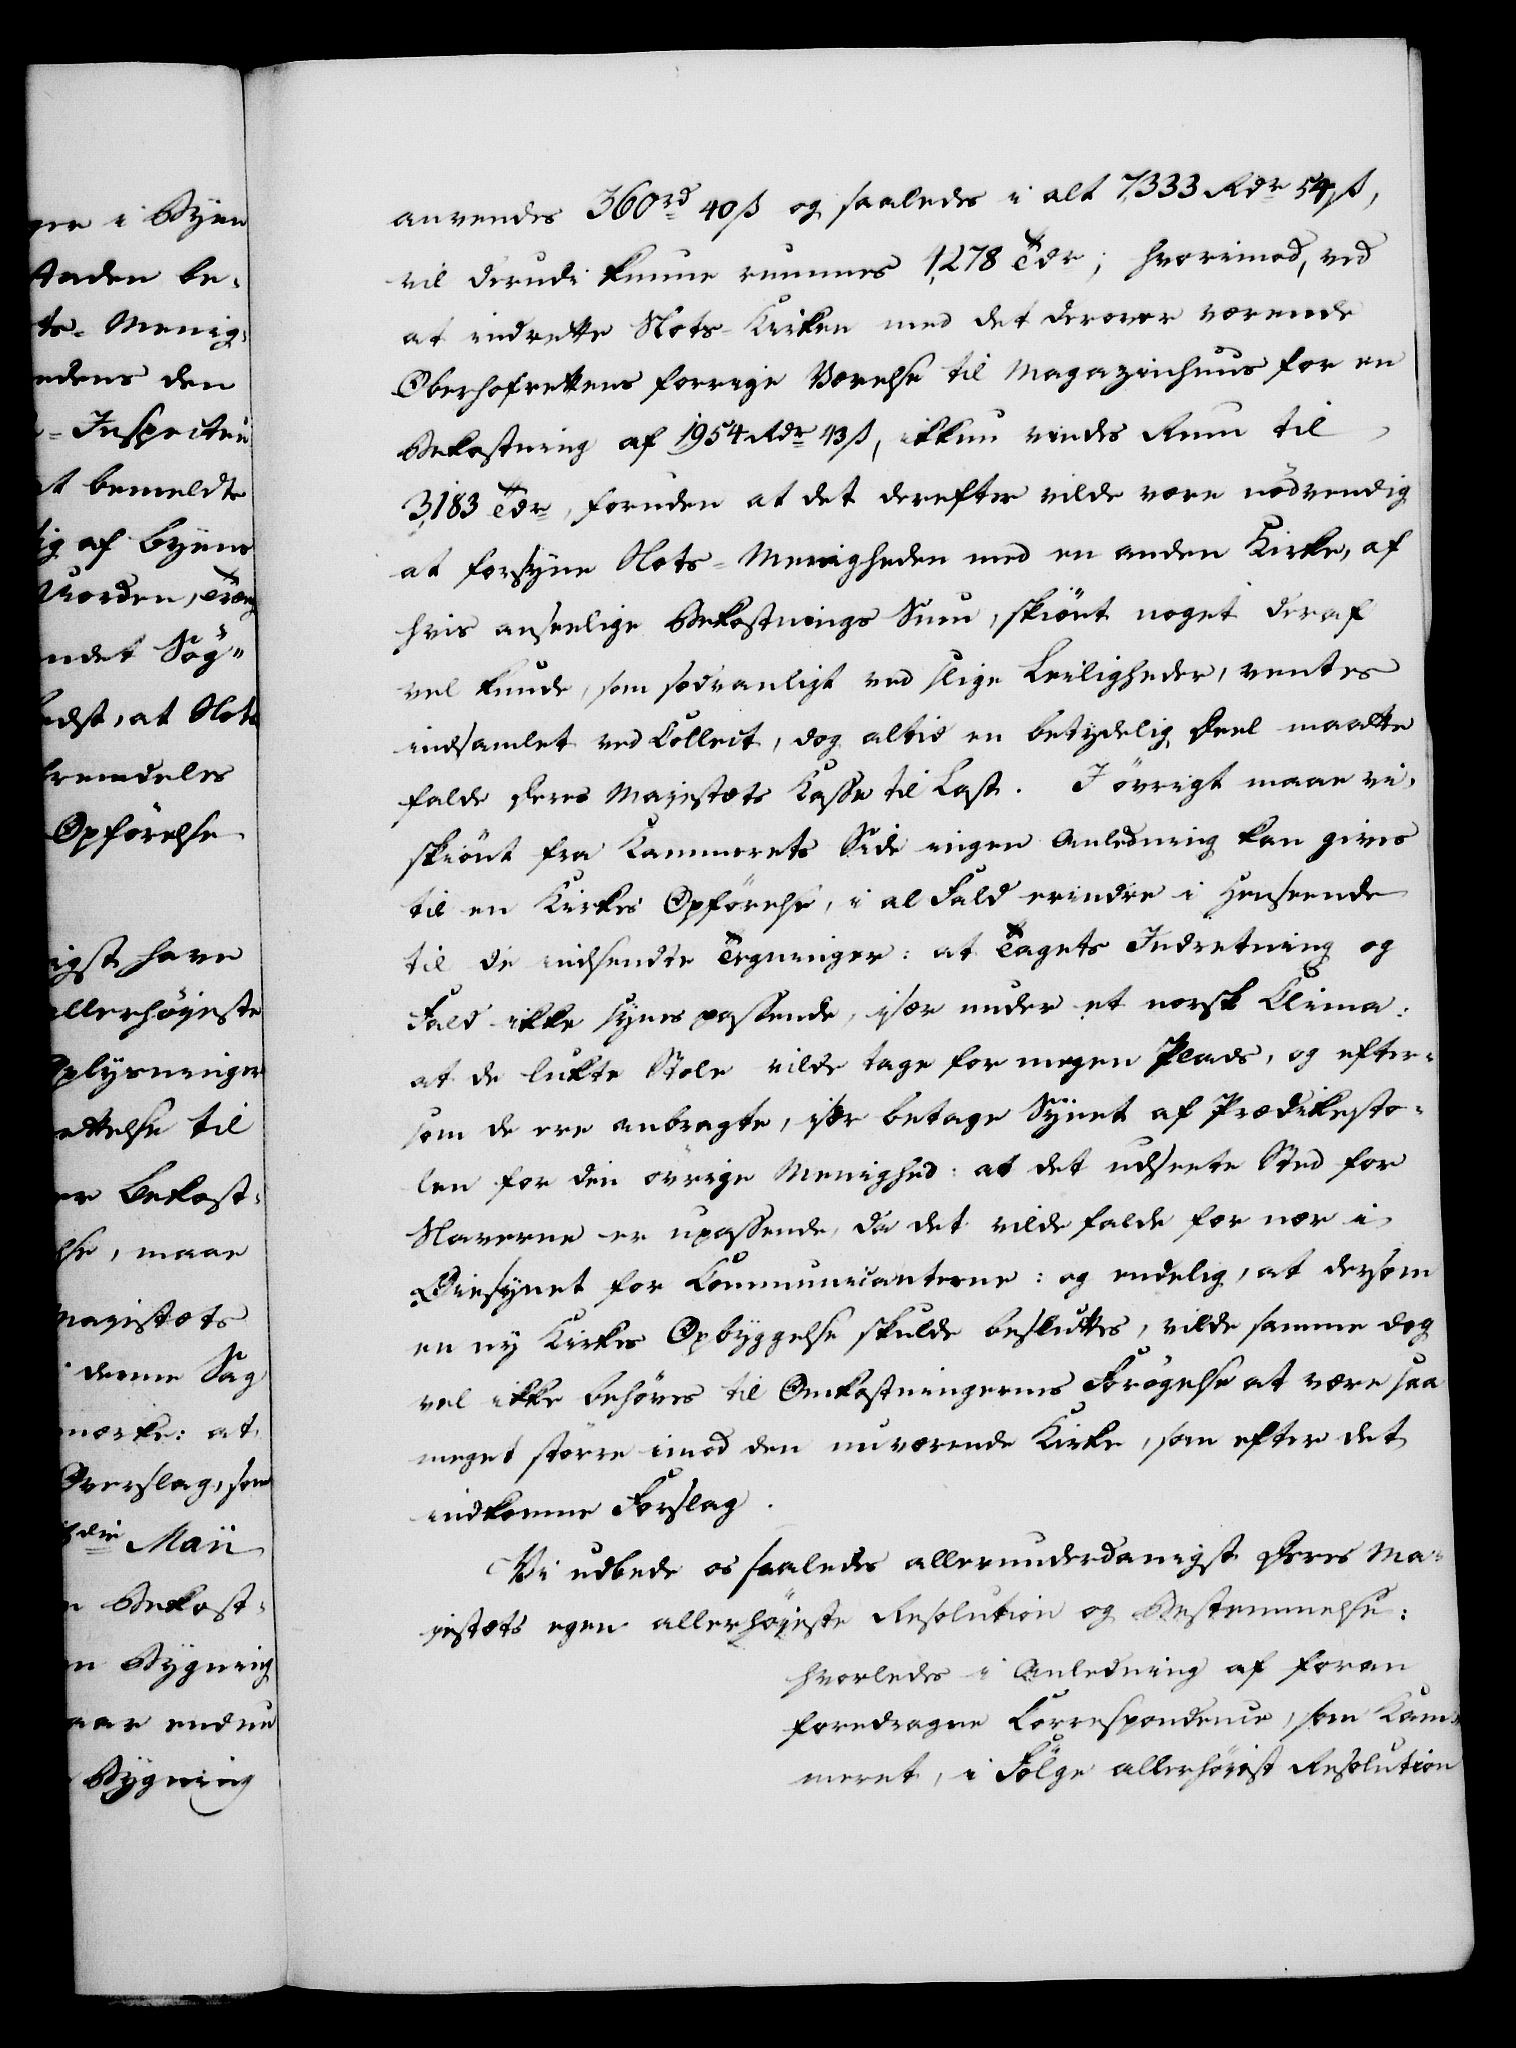 gre i Byen
Staden be-
ts- Menig-
edens den
e-Inspecteur
at bemeldte
lig af Byens
Norden, Trang
ndet Søg-
bedst, at Slots
fremdeles
Opførelse
igst have
allerhøyeste
Oplysninger
ettelse til
er Bekost-
lse, maae
Majestæts
i denne Sag
mærke: at
Overslag, som
die Maii
n Bekost-
en Bygning
aar endnu
Bygning
anvendes 360rd 40ß og saaledes i alt 7,333 Rdr 54ß,
vil derudi kunne rummes 1,278 Tdr; hvorimod, ved
at indrette Slots-Kirken med det derover værende
Oberhofrettens forrige Værelse til Magazinhuus for en
Bekostning af 1954 Rdr 43ß, ikkun vindes Rum til
3,183 Tdr, foruden at det derefter vilde være nødvendig
at forsyne Slots-Menigheden med en anden Kirke, af
hvis anseelige Bekostnings Sum, skiønt noget deraf
vel kunde, som sædvanligt ved slige Leiligheder, ventes
indsamlet ved Collect, dog altid en betydelig Deel maatte
falde Deres Majestæts Kasse til Last. I øvrigt maae vi,
skiønt fra Kammerets Side ingen Anledning kan gives
til en Kirkes Opførelse, i al Fald erindre i Henseende
til de indsendte Tegninger: at Tagets Indretning og
Fald ikke synes passende, især under et norsk Clima:
at de lukte Stole vilde tage for megen Plads, og efter-
som de ere anbragte, især betage Synet af Prædikesto-
len for den øvrige Menighed: at det udseete Sted for
Slaverne er upassende, da det vilde falde for nær i
Øiesynet for Communicanterne: og endelig, at dersom
en ny Kirkes Opbyggelse skulde besluttes, vilde samme dog
vel ikke behøves til Omkostningernes Forøgelse at være saa
meget større imod den nuværende Kirke, som efter det
indkomne Forslag.
Vi udbede os saaledes allerunderdanigst Deres Ma-
jestæts egen allerhøyeste Resolution og Bestemmelse:
hvorledes i Anledning af foran
foredragne Correspondence, som Kam-
meret, i Følge allerhøiest Resolution